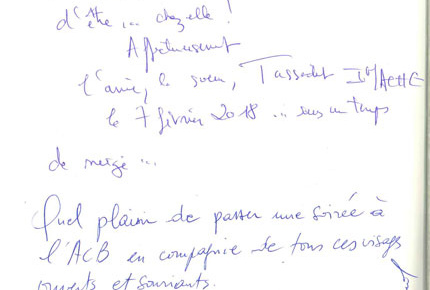 d'être... chez elle !
Affectueusement
l'amie, la soeur, Tassadit
le 7 février 2018 ... sous un temps
de neige ...
Quel plaisir de passer une soirée à
l'ACB en compagnie de tous ces visages
ouverts et souriants.